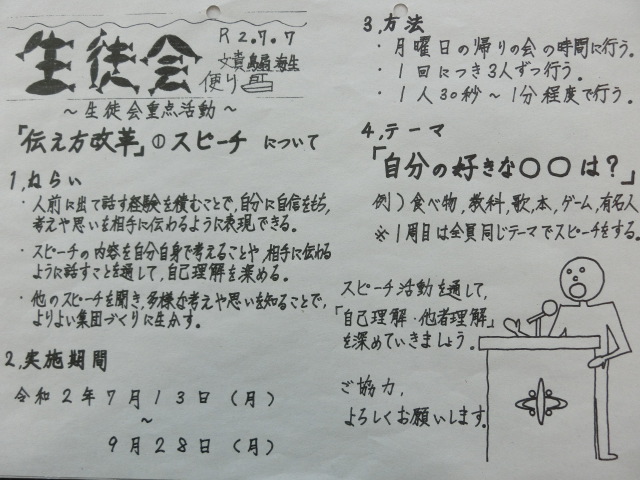 生徒会
便り
R2.7.7
文責
～生徒会重点活動～
「伝え方改革」①スピーチ について
1,ねらい
・人前に出て話す経験を積むことで,自分に自信をもち,
考えや思いを相手に伝わるように表現できる。
・スピーチの内容を自分自身で考えることや,相手に伝わる
ように話すことを通して,自己理解を深める。
・他のスピーチを聞き,多様な考えや思いを知ることで,
よりよい集団づくりに生かす。
2,実施期間
令和2年7月13日(月)
～
9月28日(月)
3,方法
・月曜日の帰りの会の時間に行う。
・1回につき3人ずつ行う。
・1人30秒～1分程度で行う。
4,テーマ
「自分の好きな○○は?」
例)食べ物,教科,歌,本,ゲーム,有名人
※1周目は全員同じテーマでスピーチをする。
スピーチ活動を通して,
「自己理解・他者理解」
を深めていきましょう。
ご協力,
よろしくお願いします。